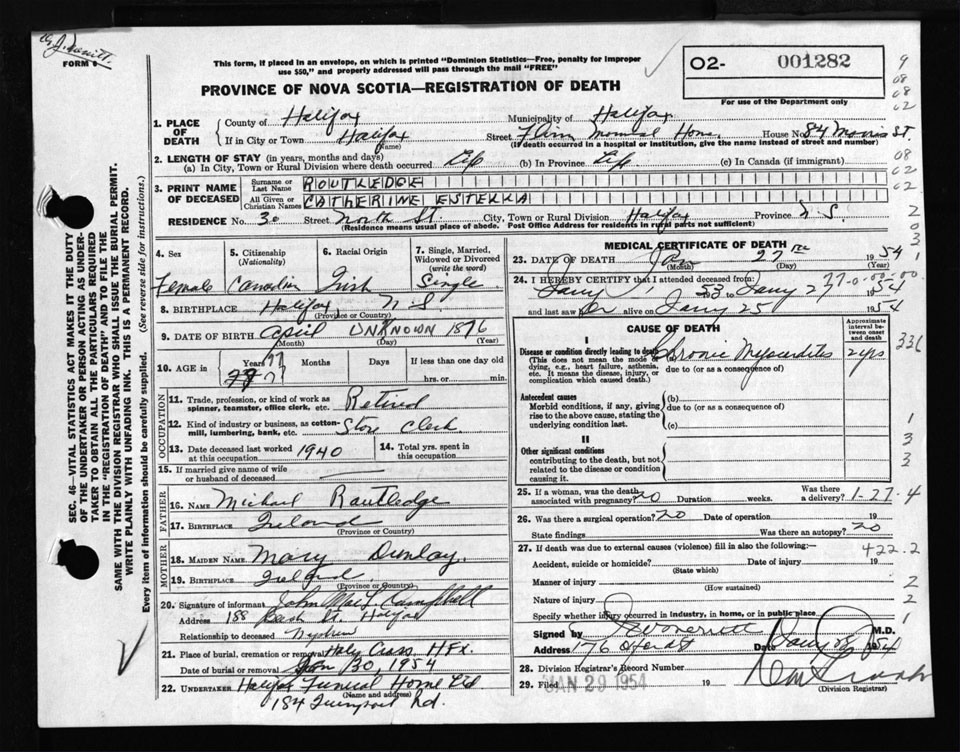 FORM 6
This form, if placed in an envelope, on which is printed "Dominion Statistics—Free, penalty for improper
use $50," and properly addressed will pass through the mail "FREE"
PROVINCE OF NOVA SCOTIA—REGISTRATION OF DEATH
O2- 001282
For use of the Department only
1. PLACE OF DEATH
County of Halifax Municipality of Halifax
If in City or Town Halifax Street Home House No. 84 Morris St.
(Name) (If death occurred in a hospital or institution, give the name instead of street and number)
2. LENGTH OF STAY (in years, months and days)
(a) In City, Town or Rural Division where death occurred Life (b) In Province Life (c) In Canada (if immigrant)
3. PRINT NAME OF DECEASED
Surname or Last Name ROUTLEDGE
All Given or Christian Names CATHERINE ESTELLA
RESIDENCE No. 30 Street North St. City, Town or Rural Division Halifax Province N.S.
(Residence means usual place of abode. Post Office Address for residents in rural parts not sufficient)
4. Sex Female
5. Citizenship (Nationality) Canadian
6. Racial Origin Irish
7. Single, Married, Widowed or Divorced (write the word) Single
8. BIRTHPLACE Halifax N S
(Province or Country)
9. DATE OF BIRTH April UNKNOWN 1876
(Month) (Day) (Year)
10. AGE in Years 77 Months Days If less than one day old
hrs. or min.
OCCUPATION
11. Trade, profession, or kind of work as spinner, teamster, office clerk, etc. Retired
12. Kind of industry or business, as cotton-mill, lumbering, bank, etc. Store Clerk
13. Date deceased last worked at this occupation 1940
14. Total yrs. spent in this occupation
15. If married give name of wife or husband of deceased
FATHER
16. NAME Michael Routledge
17. BIRTHPLACE Ireland
(Province or Country)
MOTHER
18. MAIDEN NAME Mary Dunlay
19. BIRTHPLACE Ireland
(Province or Country)
20. Signature of informant John Campbell
Address 188 St. Halifax
Relationship to deceased Nephew
21. Place of burial, cremation or removal Holy Cross, HFX.
Date of burial or removal Jan 30, 1954
22. UNDERTAKER Halifax Funeral Home Ltd
(Name and address)
184 Rd.
MEDICAL CERTIFICATE OF DEATH
23. DATE OF DEATH Jan 27th 1954
(Month) (Day) (Year)
24. I HEREBY CERTIFY that I attended deceased from:
53 to 27 1954
and last saw her alive on 25 1954
CAUSE OF DEATH
Approximate interval between onset and death
I
Disease or condition directly leading to death Chronic Myocarditis 2 yrs
(This does not mean the mode of dying, e.g., heart failure, asthenia, etc. It means the disease, injury, or complication which caused death.)
due to (or as a consequence of)
Antecedent causes
Morbid conditions, if any, giving rise to the above cause, stating the underlying condition last.
(b)
due to (or as a consequence of)
(c)
II
Other significant conditions
contributing to the death, but not related to the disease or condition causing it.
25. If a woman, was the death associated with pregnancy? no Duration weeks. Was there a delivery?
1-27-4
26. Was there a surgical operation? no Date of operation 19
State findings Was there an autopsy? no
27. If death was due to external causes (violence) fill in also the following:— 422.2
Accident, suicide or homicide? Date of injury 19
(State which)
Manner of injury
(How sustained)
Nature of injury
Specify whether injury occurred in industry, in home, or in public place
Signed by M.D.
Address 176 Date 1954
28. Division Registrar's Record Number
29. Filed JAN 29 1954 19
(Division Registrar)
SEC. 46—VITAL STATISTICS ACT MAKES IT THE DUTY
OF THE UNDERTAKER OR PERSON ACTING AS UNDER-
TAKER TO OBTAIN ALL THE PARTICULARS REQUIRED
IN THE "REGISTRATION OF DEATH" AND TO FILE THE
SAME WITH THE DIVISION REGISTRAR WHO SHALL ISSUE THE BURIAL PERMIT.
WRITE PLAINLY WITH UNFADING INK. THIS IS A PERMANENT RECORD.
Every item of information should be carefully supplied. (See reverse side for instructions.)